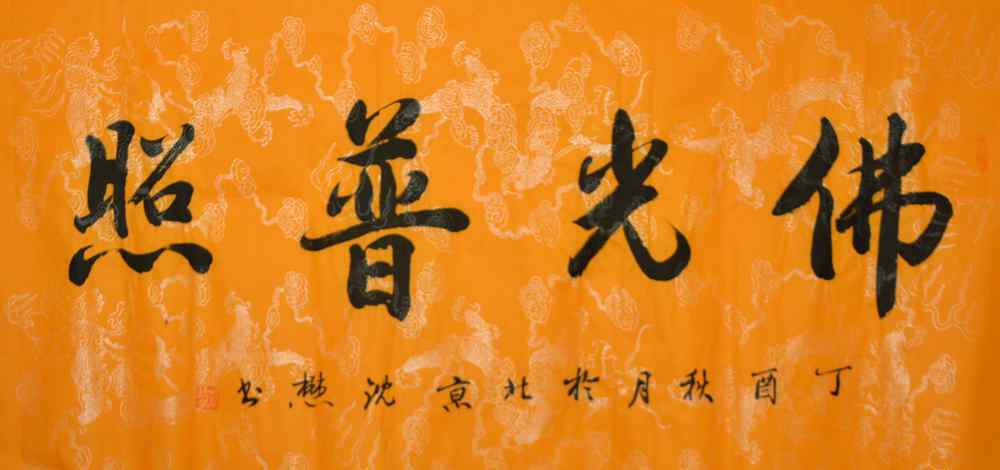 佛光普照
丁酉秋月於北京沈懋书